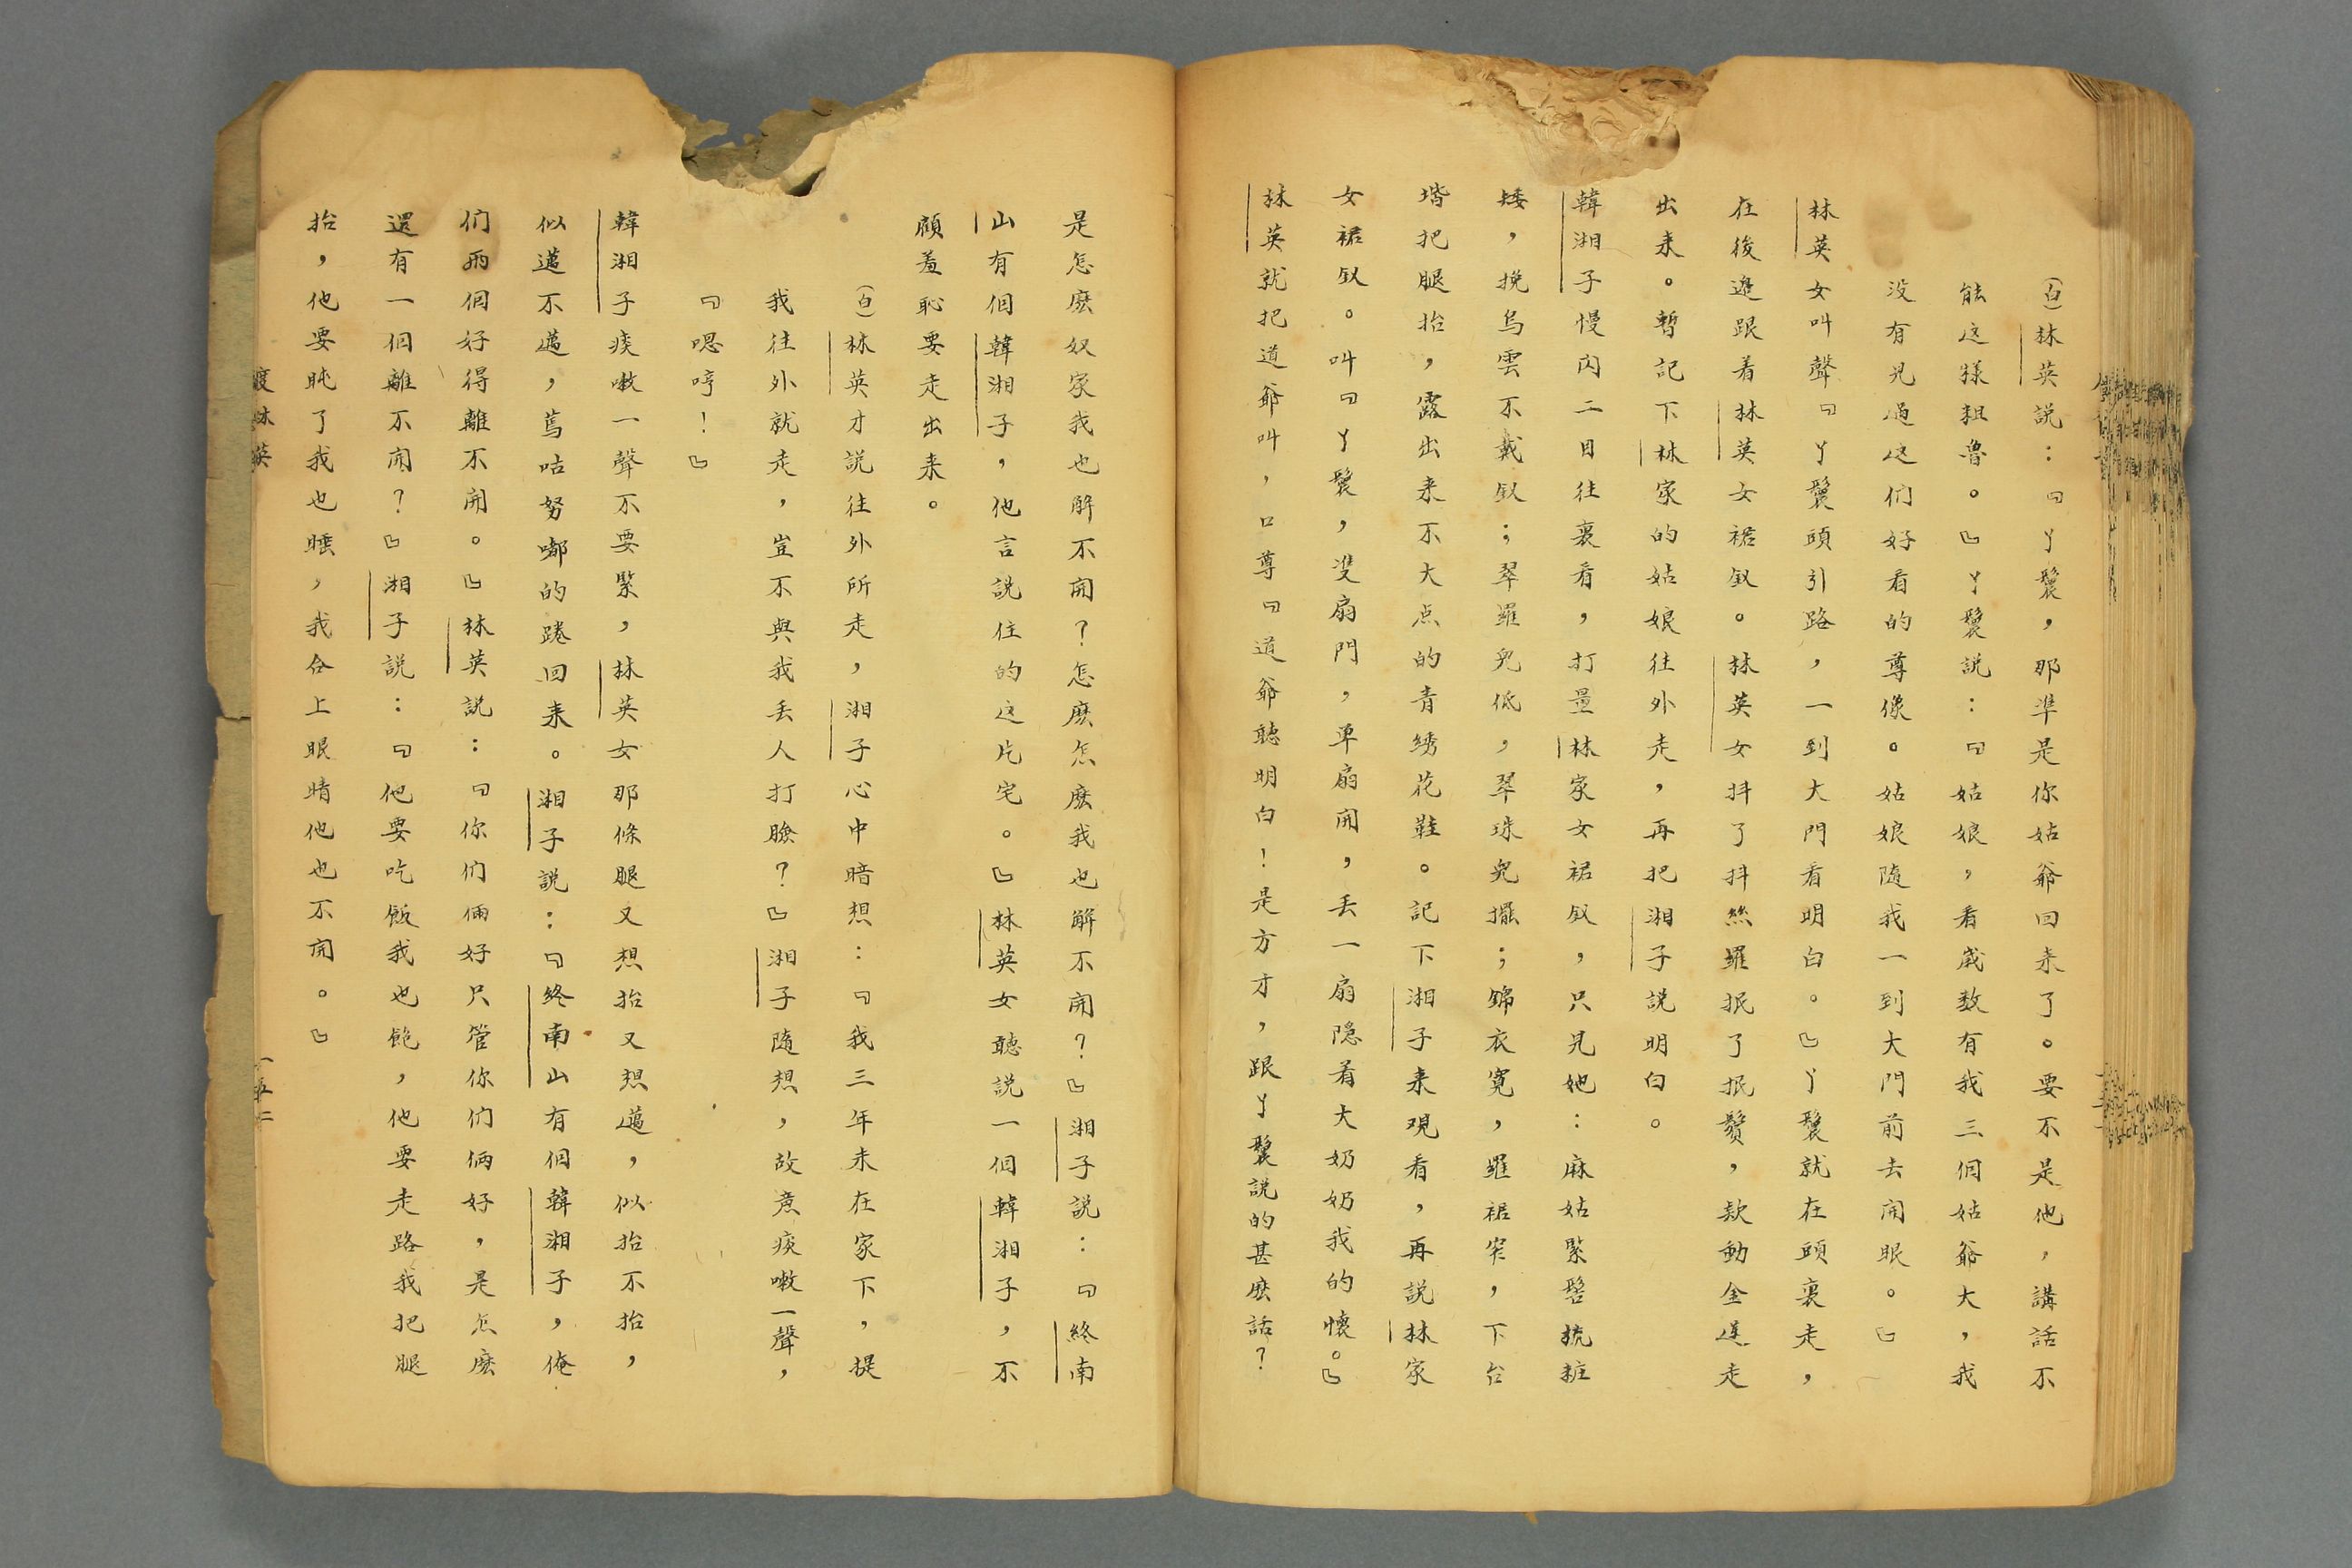 (白)林英説：『丫鬟，那準是你姑爺回来了。要不是他，講話不
能这樣粗魯。』丫鬟説：『姑娘，看歲数有我三個姑爺大，我
没有見過这们好看的尊像。姑娘隨我一到大門前去開眼。』
林英女叫聲『丫鬟頭引路，一到大門看明白。』丫鬟就在頭裏走，
在後邊跟着林英女裙釵。林英女抖了抖絲羅抿了抿鬢，款動金莲走
出来。暫記下林家的姑娘往外走，再把湘子説明白。
韓湘子慢闪二目往裏看，打量林家女裙釵，只見她：麻姑緊髻梳粧
矮，挽烏雲不戴釵；翠羅兒低，翠珠兒擺；錦衣寬，羅裙窄，下台
堦把腿抬，露出来不大点的青綉花鞋。記下湘子来观看，再説林家
女裙釵。叫『丫鬟，雙扇門，单扇開，丢一扇隐着大奶奶我的懷。』
林英就把道爺叫，口尊『道爺聽明白！是方才，跟丫鬟説的甚麽話？
是怎麽奴家我也解不開？怎麽怎麽我也解不開？』湘子説：『終南
山有個韓湘子，他言説住的这片宅。』林英女聽説一個韓湘子，不
顧羞恥要走出来。
(白)林英才説往外所走，湘子心中暗想：『我三年未在家下，提
我往外就走，豈不與我丢人打臉？』湘子隨想，故意痰嗽一聲，
『嗯哼！』
韓湘子痰嗽一聲不要緊，林英女那條腿又想抬又想邁，似抬不抬，
似邁不邁，蔫咕努嘟的踡回来。湘子説：『終南山有個韓湘子，俺
们兩個好得離不開。』林英説：『你们倆好只管你们倆好，是怎麽
還有一個離不開？』湘子説：『他要吃飯我也飽，他要走路我把腿
抬，他要盹了我也睡，我合上眼睛他也不開。』
渡林英
一五二